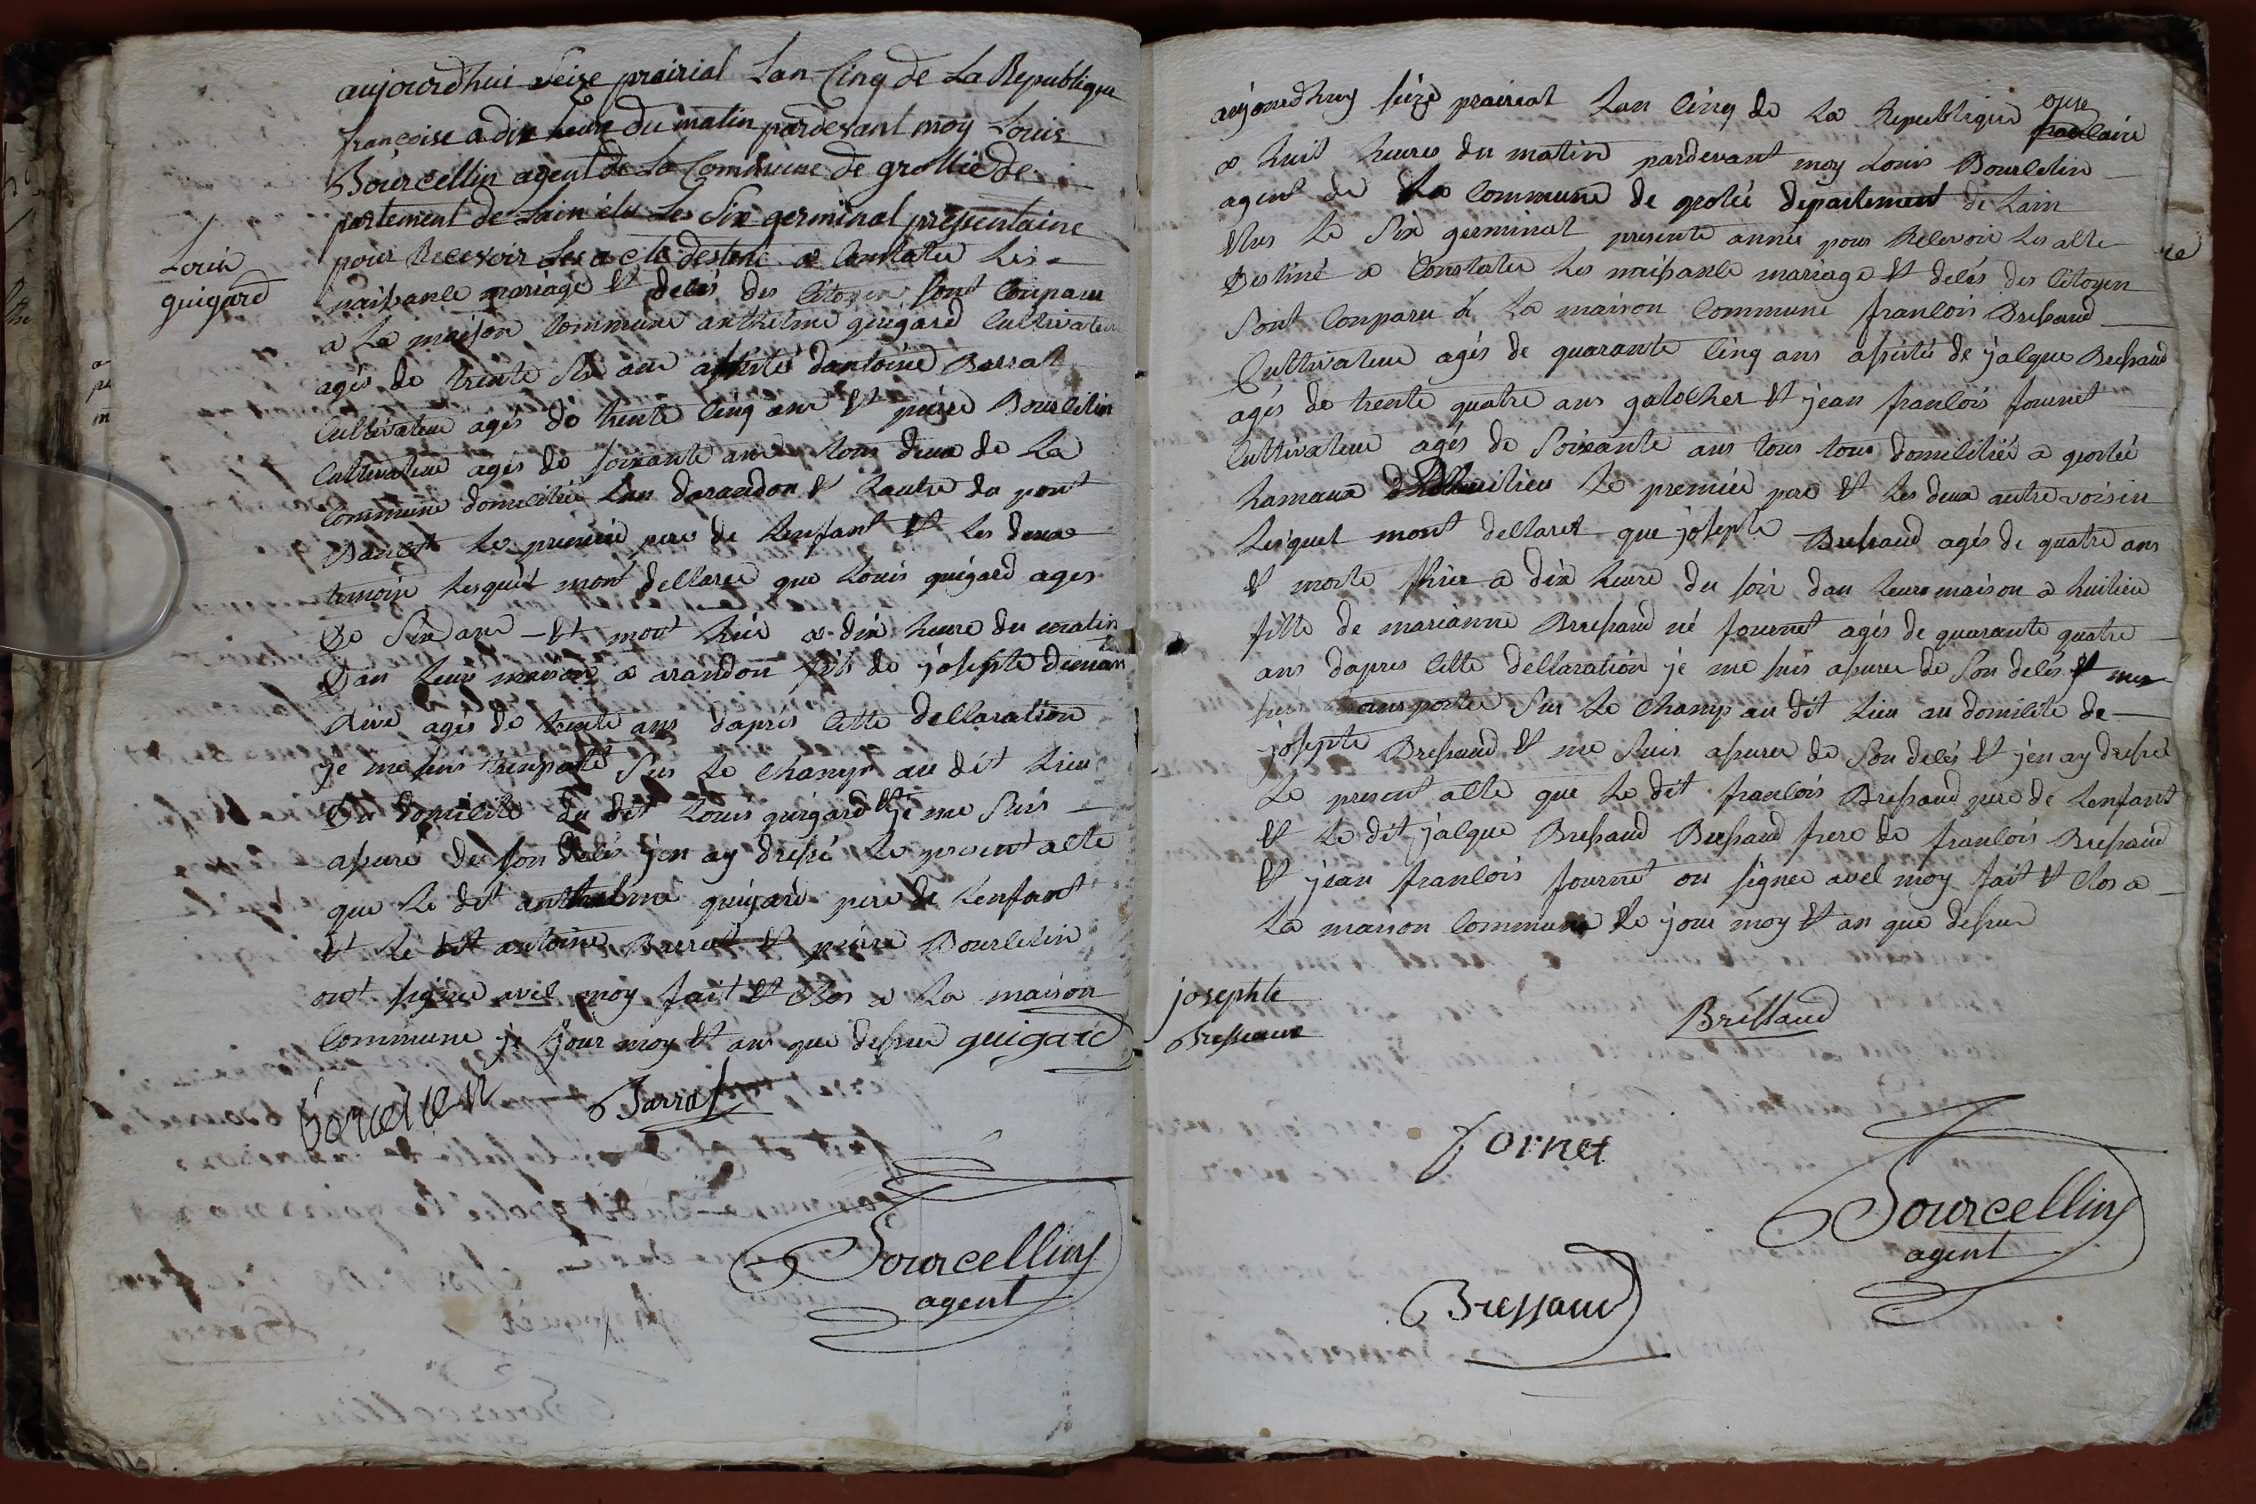 aujourdhui seize prairial Lan Cinq de La Republique
françoise a dix heure du matin pardevant moy Louis
Bourcellin agent de La Commune de grollié de
partement de Lain élu Les Six germinal presentaine
pour Recevoir Les acte destené a Constater Les
naissanle mariage et delés des Citoyen sont Conparu
a La maison Commune anthelme guigard Cultivateur
agés de trente six ans assisté dantoine Barrat
Cultivateur agés de trente Cinq ans et pierre Bourlelin
Cultivateur agés de soixante ans tous deux de La
Commune domicilié Lun darandon et Lautre du port
Le premier pere de Lenfant et Les deux
temoin Lesquel mont dellaree que Louis guigard ages
De Six ans et mort hier a dix heure du matin
Dan Leur maison a arandon fils de josephte
agés de trente ans dapres Cette dellaration
je me suis transporté Sur Le Champ au dit Lieu
Du domicile du dit Louis guigard et je me Suis
assuré de son delés jen ay dressé Le present alte
que Le dit anthelme guigard pere de Lenfant
et Le dit antoine Barrat et pierre Bourlelin
ont signer avel moy fait et Clos a La maison
Commune Le jour moy et ans que dessue guigard
Borcelen Barrat
Bourcellin
agent
Louis
guigard
aujourdhuy seize prairial Lan Cinq de La Republique
a huit heures du matin pardevant moy Louis Bourlelin
agent de La Commune de groleé departement de Lain
Elus Le Six germinal presente année pour Relevoir Les alte
Destiné a Constater Les naissanle mariage et delés des Citoyen
Sont Conparu a La maison Commune franlois Bressaud
Cultivateur agés de quarante Cinq ans assisté de jalque Bressaud
agés de trente quatre ans galocher et jean franlois fournet
Cultivateur agés de Soixante ans tous tous domicilié a groleé
hamaux Le premier pere et Les deux autre voisin
Lesquel mont dellaret que josephte Bressaud agés de quatre ans
et morte hier a dix heure du soir dan Leurs maison a huilieu
fille de marianne Bressaud né fournet agés de quarante quatre
ans dapres Cette dellaration je me suis assurer de Son delés et me
suis transporté Sur Le Champ au dit Lieu au domicile de
josephte Bressaud et me Suis assurer de Son delés et jen ay dressé
Le present alte que Le dit franlois Bressaud pere de Lenfant
et Le dit jalque Bressaud Bressaud frere de franlois Bressaud
et jean franlois fournet on signer avel moy fait et Clos a
La maison Commune Le jour moy et an que dessue
josephte
Bresseaux
Bressaud
fornet
Bourcellin
agent
Bressaud